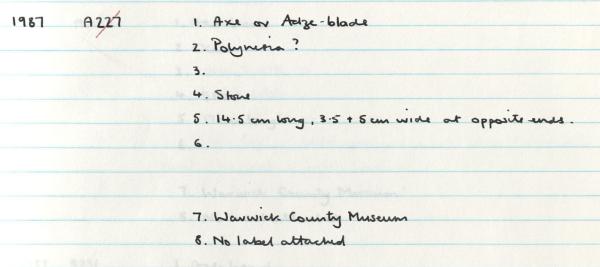 1987 A227 1. Axe or Adze-blade
2. Polynesia ?
3.
4. Stone
5. 14.5 cm long, 3.5 + 5 cm wide at opposite ends.
6.
7. Warwick County Museum
8. No label attached